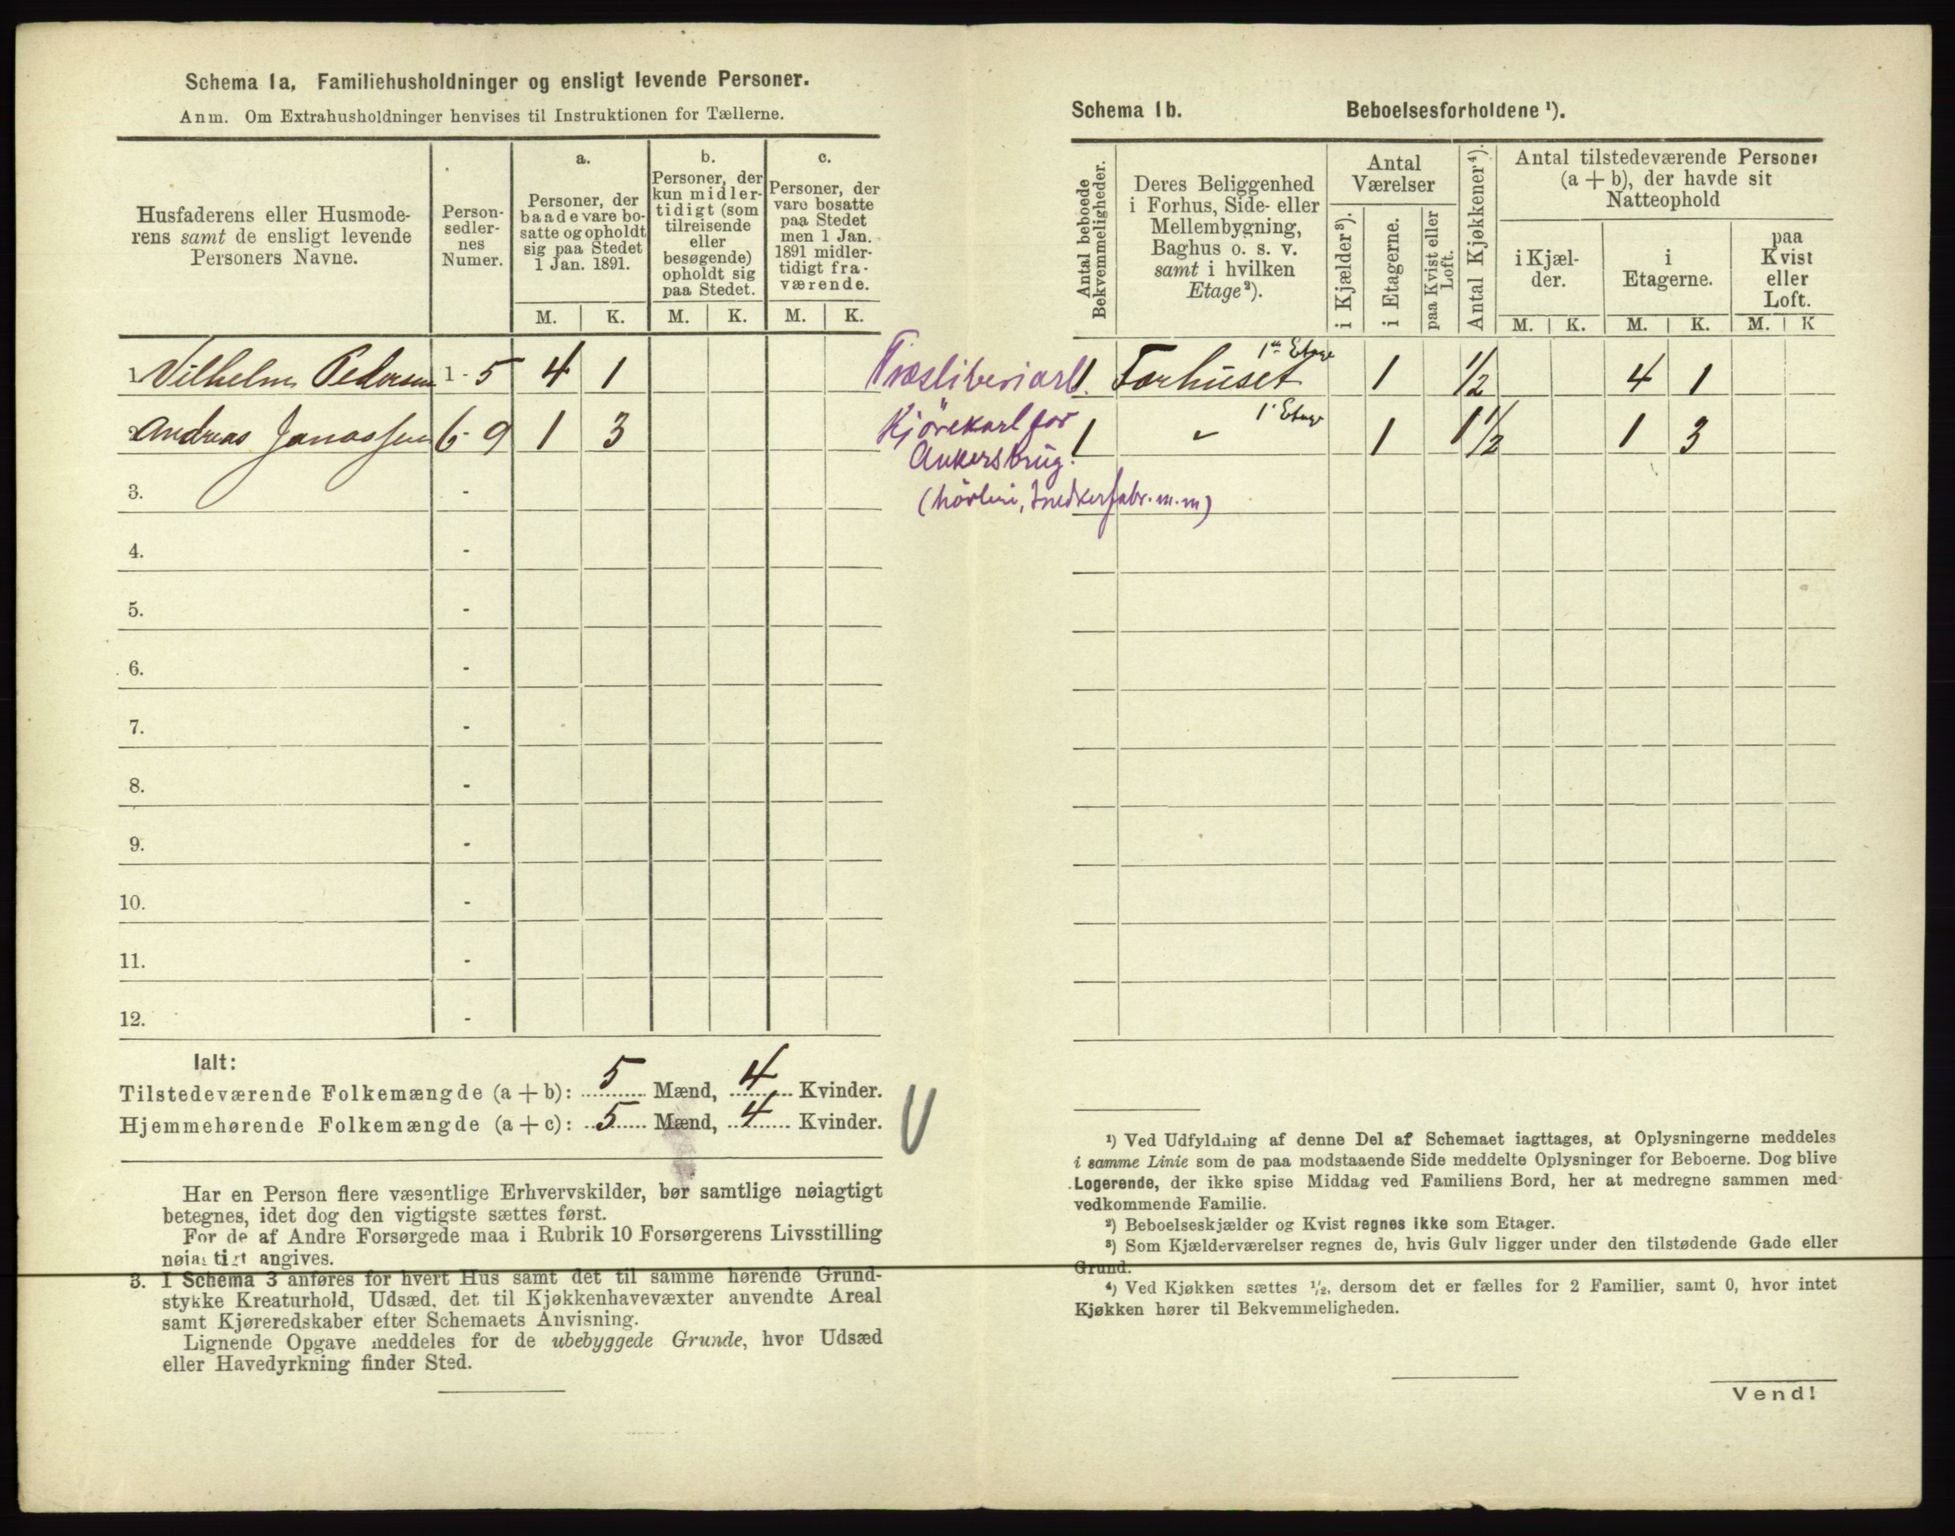 Schema 1a, Familiehusholdninger og ensligt levende Personer.
Anm. Om Extrahusholdninger henvises til Instruktionen for Tællerne.
Husfaderens eller Husmode-
rens samt de ensligt levende
Personers Navne.
Person-
sedler-
nes
Numer.
a.
Personer, der
baade vare bo-
satte og opholdt
sig paa Stedet
1 Jan. 1891.
b.
Personer, der
kun midler-
tidigt (som
tilreisende
eller
besøgende)
opholdt sig
paa Stedet.
c.
Personer, der
vare bosatte
paa Stedet
men 1 Jan.
1891 midler-
tidigt fra-
værende.
M. K. M. K. M. K.
1. Vilhelm Pedersen 1 - 5 4 1
2. Andreas Jonassen 6 - 9 1 3
3. -
4. -
5. -
6. -
7. -
8. -
9. -
10. -
11. -
12. -
Ialt:
Tilstedeværende Folkemængde (a + b): 5 Mænd, 4 Kvinder.
Hjemmehørende Folkemængde (a + c): 5 Mænd, 4 Kvinder.
Har en Person flere væsentlige Erhvervskilder, bør samtlige nøiagtigt
betegnes, idet dog den vigtigste sættes først.
For de af Andre Forsørgede maa i Rubrik 10 Forsørgerens Livsstilling
nøiagtigt angives.
3. I Schema 3 anføres for hvert Hus samt det til samme hørende Grund-
stykke Kreaturhold, Udsæd, det til Kjøkkenhavevæxter anvendte Areal
samt Kjøreredskaber efter Schemaets Anvisning.
Lignende Opgave meddeles for de ubebyggede Grunde, hvor Udsæd
eller Havedyrkning finder Sted.
Schema 1b. Beboelsesforholdene ¹).
Antal beboede
Bekvemmeligheder.
Deres Beliggenhed
i Forhus, Side- eller
Mellembygning,
Baghus o. s. v.
samt i hvilken
Etage²).
Antal
Værelser
i Kjælder³).
i Etagerne.
paa Kvist eller
Loft.
Antal Kjøkkener⁴).
Antal tilstedeværende Personer
(a + b), der havde sit
Natteophold
i Kjæl-
der.
i
Etagerne.
paa
Kvist
eller
Loft.
M. K. M. K. M. K
1 Forhuset 1ste Etage 1 1/2 4 1
Kjörekarl for
1 " 1' Etage 1 1 1/2 1 3
Ankersbrug.
¹) Ved Udfyldning af denne Del af Schemaet iagttages, at Oplysningerne meddeles
i samme Linie som de paa modstaaende Side meddelte Oplysninger for Beboerne. Dog blive
Logerende, der ikke spise Middag ved Familiens Bord, her at medregne sammen med
vedkommende Familie.
²) Beboelseskjælder og Kvist regnes ikke som Etager.
³) Som Kjælderværelser regnes de, hvis Gulv ligger under den tilstødende Gade eller
Grund.
⁴) Ved Kjøkken sættes ¹/₂, dersom det er fælles for 2 Familier, samt 0, hvor intet
Kjøkken hører til Bekvemmeligheden.
Vend!